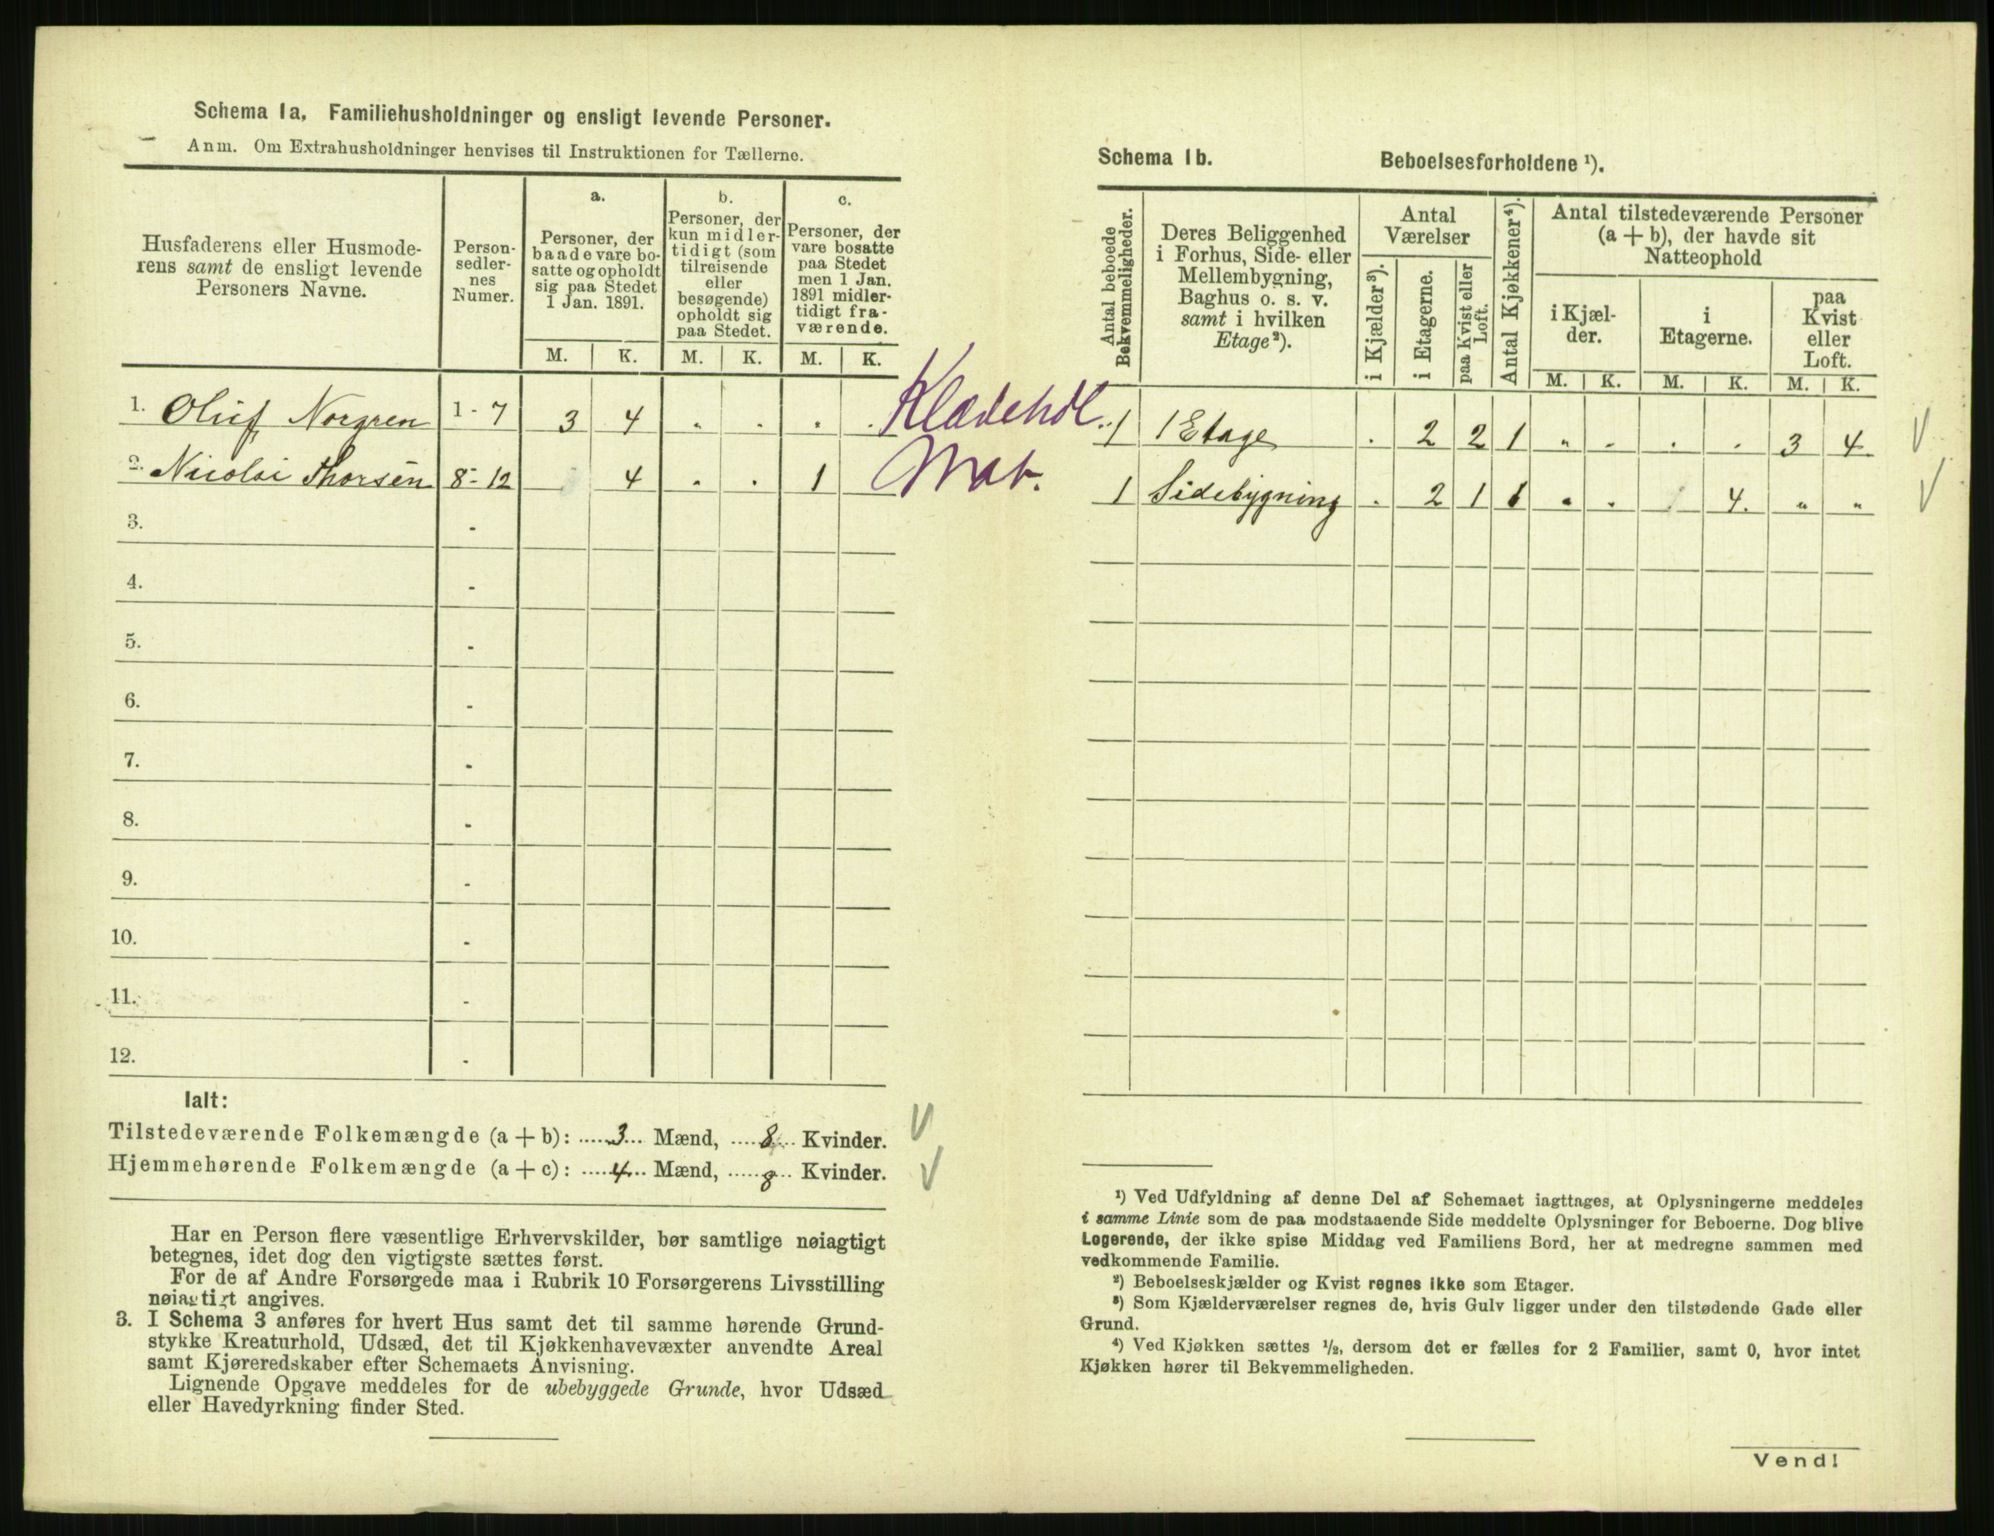 Schema 1a. Familiehusholdninger og ensligt levende Personer.
Anm. Om Extrahusholdninger henvises til Instruktionen for Tællerne.
Husfaderens eller Husmode-
rens samt de ensligt levende
Personers Navne.
Person-
sedler-
nes
Numer.
a.
Personer, der
baade vare bo-
satte og opholdt
sig paa Stedet
1 Jan. 1891.
b.
Personer, der
kun midler-
tidigt (som
tilreisende
eller
besøgende)
opholdt sig
paa Stedet.
c.
Personer, der
vare bosatte
paa Stedet
men 1 Jan.
1891 midler-
tidigt fra-
værende.
M. K. M. K. M. K.
1. Oluf Norgren 1 - 7 3 4 . . . . Klædehdl.
2. Nicolai Thorsen 8 - 12 4 . . 1 Mat.
3. -
4. -
5. -
6. -
7. -
8. -
9. -
10. -
11. -
12. -
Ialt:
Tilstedeværende Folkemængde (a + b): 3 Mænd, 8 Kvinder.
Hjemmehørende Folkemængde (a + c): 4 Mænd, 8 Kvinder.
Har en Person flere væsentlige Erhvervskilder, bør samtlige nøiagtigt
betegnes, idet dog den vigtigste sættes først.
For de af Andre Forsørgede maa i Rubrik 10 Forsørgerens Livsstilling
nøiagtigt angives.
3. I Schema 3 anføres for hvert Hus samt det til samme hørende Grund-
stykke Kreaturhold, Udsæd, det til Kjøkkenhavevæxter anvendte Areal
samt Kjøreredskaber efter Schemaets Anvisning.
Lignende Opgave meddeles for de ubebyggede Grunde, hvor Udsæd
eller Havedyrkning finder Sted.
Schema 1b. Beboelsesforholdene ¹).
Antal beboede
Bekvemmeligheder.
Deres Beliggenhed
i Forhus, Side- eller
Mellembygning,
Baghus o. s. v.
samt i hvilken
Etage ²).
Antal
Værelser
i Kjælder ³).
i Etagerne.
paa Kvist eller
Loft.
Antal Kjøkkener ⁴).
Antal tilstedeværende Personer
(a + b), der havde sit
Natteophold
i Kjæl-
der.
i
Etagerne.
paa
Kvist
eller
Loft.
M. K. M. K. M. K.
1 1 Etage . 2 2 1 „ . . . 3 4
1 Sidebygning . 2 1 1 „ . 4. „ „
¹) Ved Udfyldning af denne Del af Schemaet iagttages, at Oplysningerne meddeles
i samme Linie som de paa modstaaende Side meddelte Oplysninger for Beboerne. Dog blive
Logerende, der ikke spise Middag ved Familiens Bord, her at medregne sammen med
vedkommende Familie.
²) Beboelseskjælder og Kvist regnes ikke som Etager.
³) Som Kjælderværelser regnes de, hvis Gulv ligger under den tilstødende Gade eller
Grund.
⁴) Ved Kjøkken sættes ½, dersom det er fælles for 2 Familier, samt 0, hvor intet
Kjøkken hører til Bekvemmeligheden.
Vend!